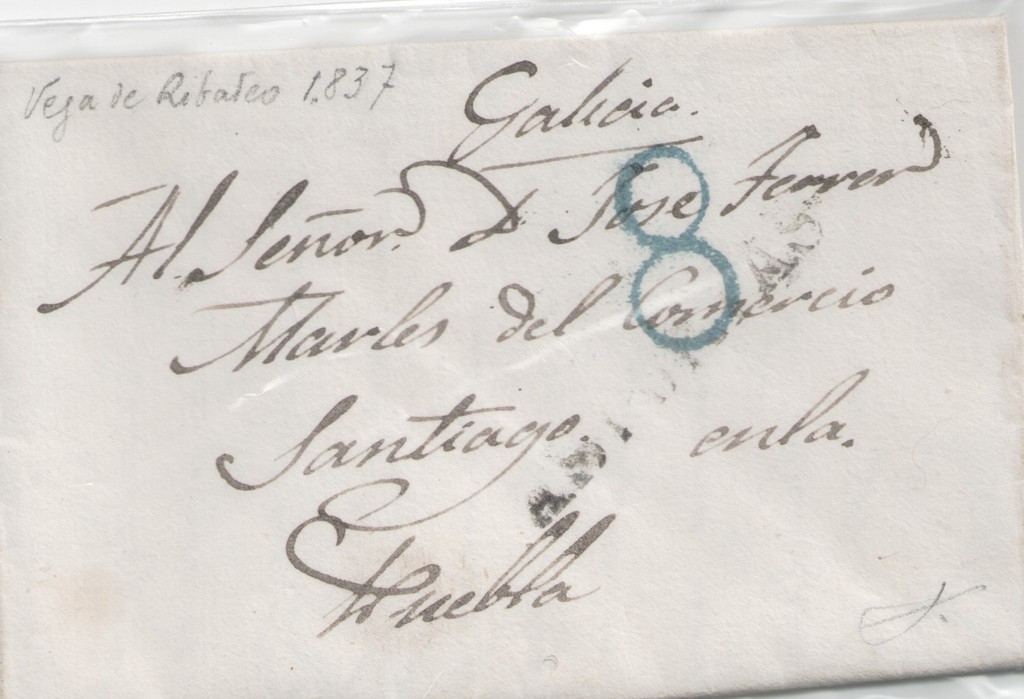 Vega de Ribadeo 1.837
Galicia.
Al Señor D. Jose Ferrer
8
Marles del Comercio
Santiago. enla.
Puebla